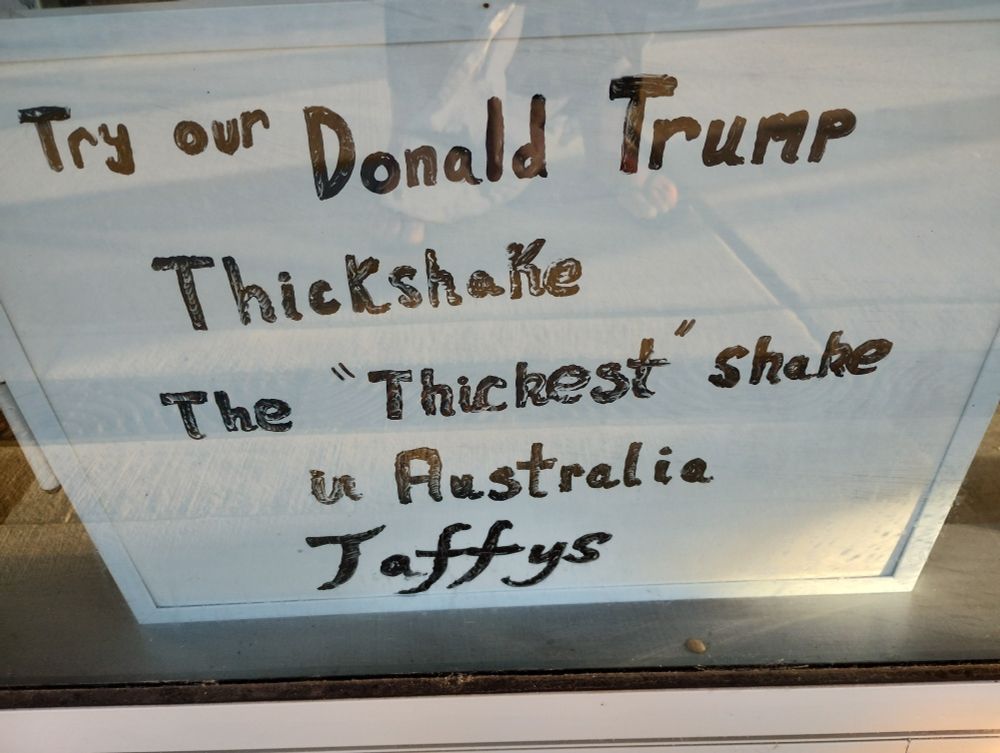 Try our Donald Trump
Thickshake
The "Thickest" shake
in Australia
Taffys